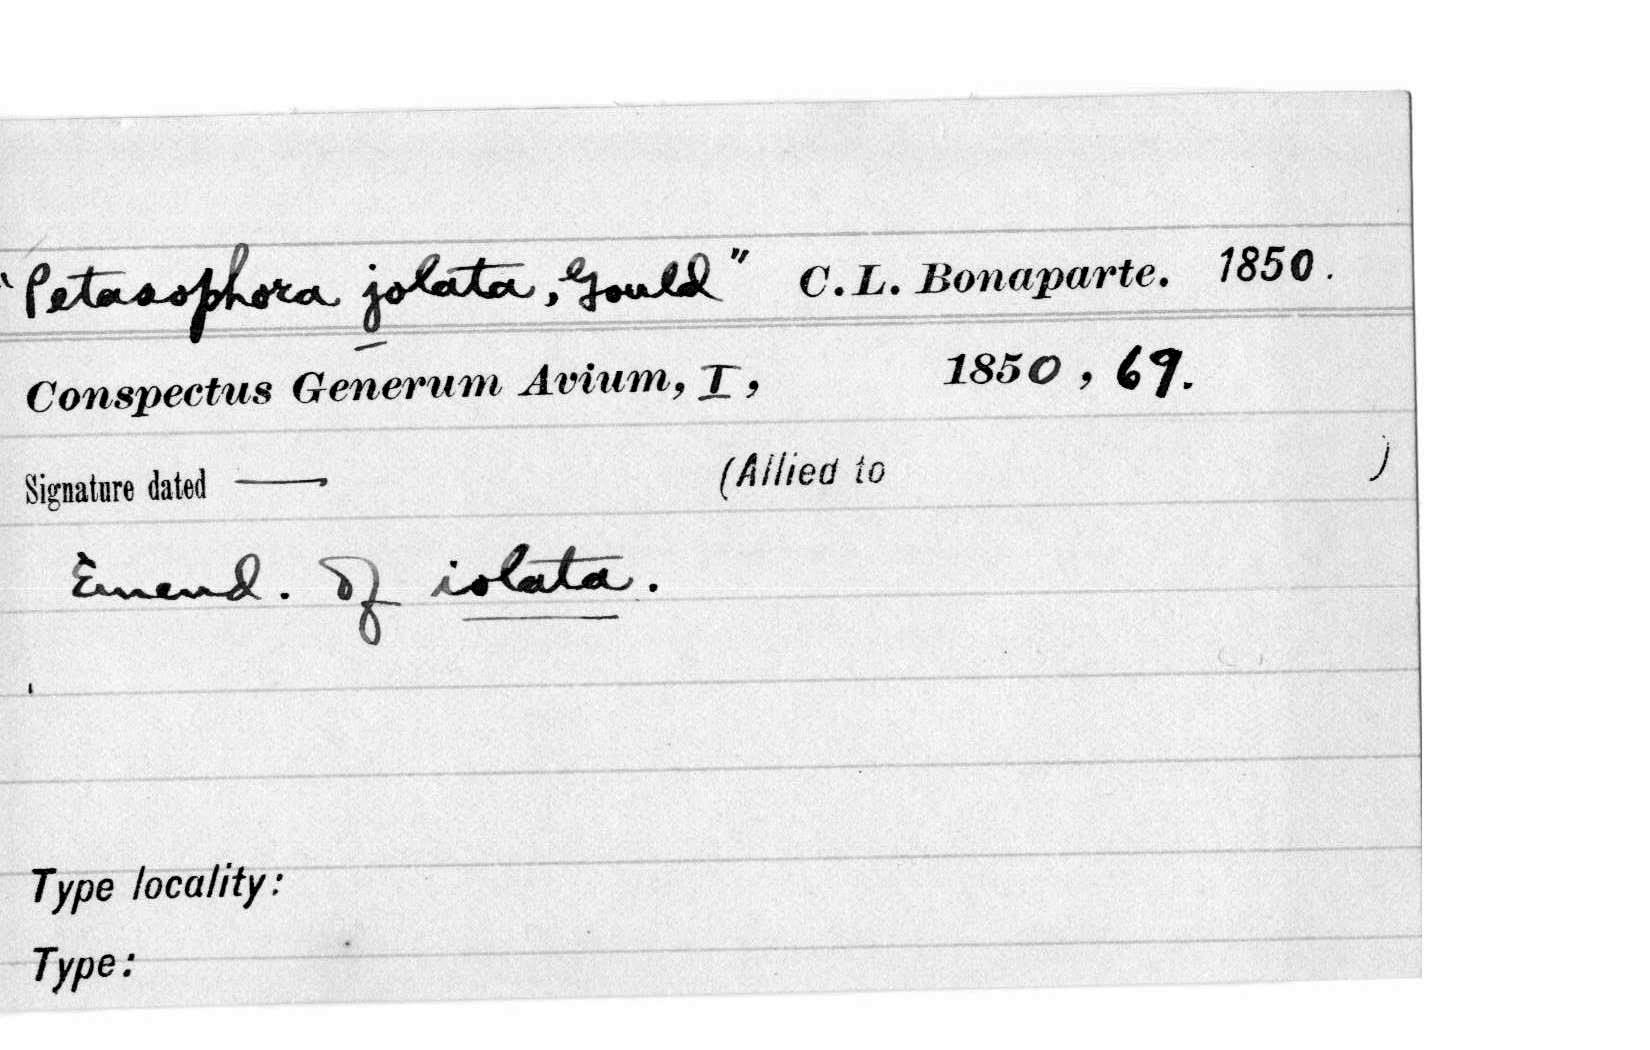 "Petasophora jolata, Gould" C. L. Bonaparte. 1850.
Conspectus Generum Avium, I, 1850, 69.
Signature dated — (Allied to )
Emend. of iolata.
Type locality:
Type: